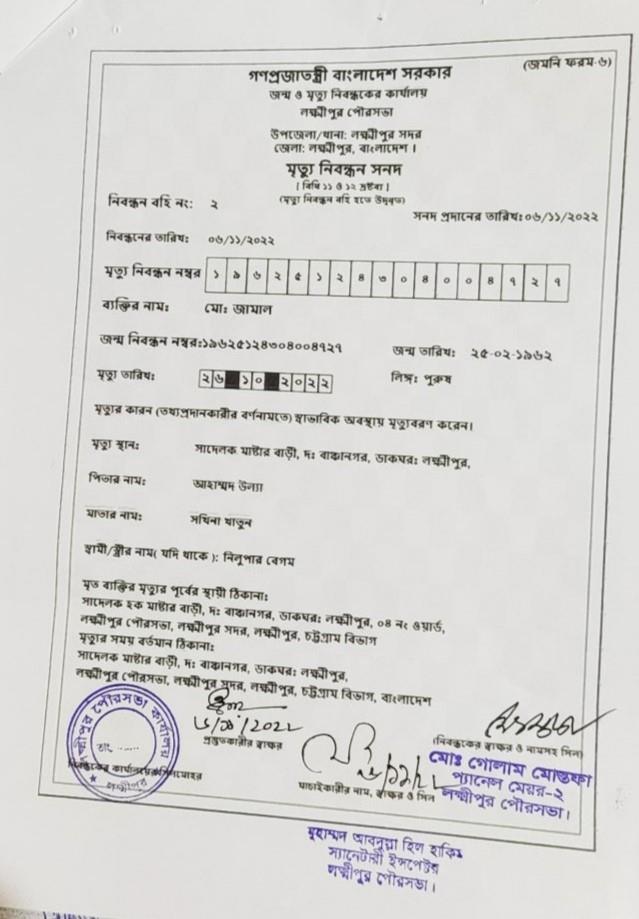 (জমনি ফরম-৬)
গণপ্রজাতন্ত্রী বাংলাদেশ সরকার
জন্ম ও মৃত্যু নিবন্ধকের কার্যালয়
লক্ষ্মীপুর পৌরসভা
উপজেলা/থানা: লক্ষ্মীপুর সদর
জেলা: লক্ষ্মীপুর, বাংলাদেশ ।
মৃত্যু নিবন্ধন সনদ
[ বিধি ১১ ও ১২ দ্রষ্টব্য ]
(মৃত্যু নিবন্ধন বহি হতে উদ্ধৃত)
নিবন্ধন বহি নং: ২
সনদ প্রদানের তারিখ: ০৬/১১/২০২২
নিবন্ধনের তারিখ: ০৬/১১/২০২২
মৃত্যু নিবন্ধন নম্বর ১ ৯ ৬ ২ ৫ ১ ২ ৪ ৩ ০ ৪ ০ ০ ৪ ৭ ২ ৭
ব্যক্তির নাম: মো: জামাল
জন্ম নিবন্ধন নম্বর:১৯৬২৫১২৪৩০৪০০৪৭২৭ জন্ম তারিখ: ২৫-০২-১৯৬২
মৃত্যু তারিখ: ২৬ ১০ ২০২২ লিঙ্গ: পুরুষ
মৃত্যুর কারন (তথ্যপ্রদানকারীর বর্ণনামতে) স্বাভাবিক অবস্থায় মৃত্যুবরণ করেন।
মৃত্যু স্থান: সাদেলক মাষ্টার বাড়ী, দ: বাঞ্চানগর, ডাকঘর: লক্ষ্মীপুর,
পিতার নাম: আহাম্মদ উল্যা
মাতার নাম: সখিনা খাতুন
স্বামী/স্ত্রীর নাম( যদি থাকে ): নিলুপার বেগম
মৃত ব্যক্তির মৃত্যুর পূর্বের স্থায়ী ঠিকানা:
সাদেলক হক মাষ্টার বাড়ী, দ: বাঞ্চানগর, ডাকঘর: লক্ষ্মীপুর, ০৪ নং ওয়ার্ড,
লক্ষ্মীপুর পৌরসভা, লক্ষ্মীপুর সদর, লক্ষ্মীপুর, চট্টগ্রাম বিভাগ
মৃত্যুর সময় বর্তমান ঠিকানা:
সাদেলক মাষ্টার বাড়ী, দ: বাঞ্চানগর, ডাকঘর: লক্ষ্মীপুর,
লক্ষ্মীপুর পৌরসভা, লক্ষ্মীপুর সদর, লক্ষ্মীপুর, চট্টগ্রাম বিভাগ, বাংলাদেশ
লক্ষ্মীপুর পৌরসভা কার্যালয়
তাং ......
লক্ষ্মীপুর
নিবন্ধকের কার্যালয়ের সিলমোহর
প্রস্তুতকারীর স্বাক্ষর
যাচাইকারীর নাম, স্বাক্ষর ও সিল
(নিবন্ধকের স্বাক্ষর ও নামসহ সিল)
মোঃ গোলাম মোস্তফা
প্যানেল মেয়র-২
লক্ষ্মীপুর পৌরসভা।
মুহাম্মদ হিল হাকিম
স্যানেটারী ইন্সপেক্টর
লক্ষ্মীপুর পৌরসভা।